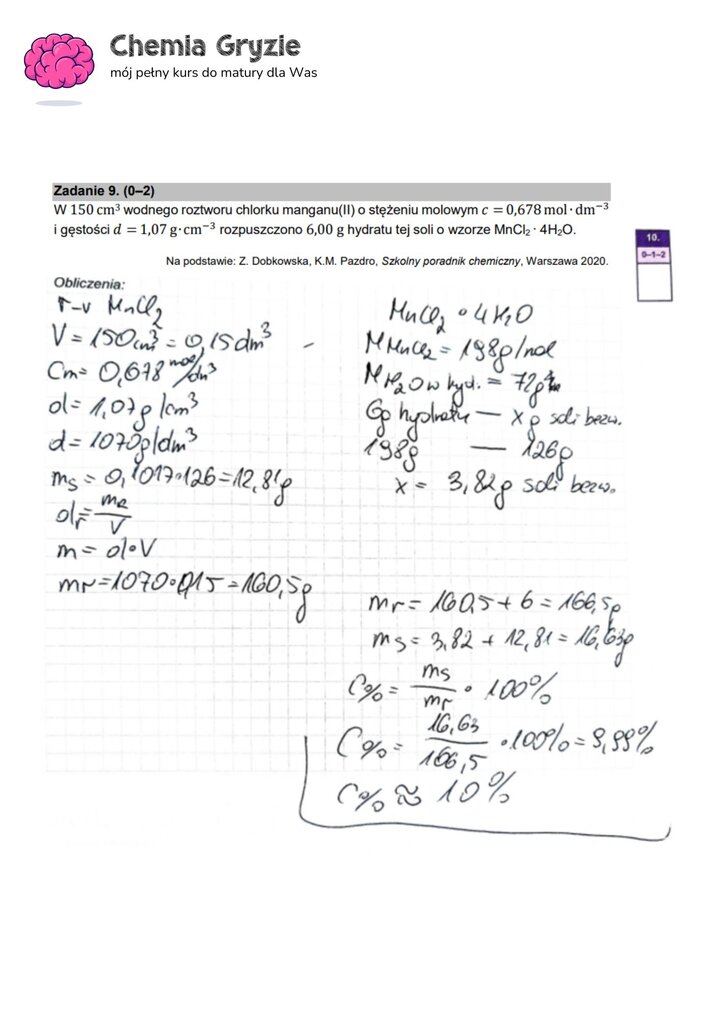 Chemia Gryzie
mój pełny kurs do matury dla Was
Zadanie 9. (0–2)
W 150 cm³ wodnego roztworu chlorku manganu(II) o stężeniu molowym c = 0,678 mol · dm⁻³
i gęstości d = 1,07 g · cm⁻³ rozpuszczono 6,00 g hydratu tej soli o wzorze MnCl₂ · 4H₂O.
10.
0–1–2
Na podstawie: Z. Dobkowska, K.M. Pazdro, Szkolny poradnik chemiczny, Warszawa 2020.
Obliczenia:
r-r MnCl₂
V = 150cm³ = 0,15dm³
Cm = 0,678 mol/dm³
d = 1,07g/cm³
d = 1070g/dm³
ms = 0,1017·126 = 12,81g
dr = mr/V
m = d·V
mr = 1070·0,15 = 160,5g
MnCl₂ · 4H₂O
M MnCl₂ = 198g/mol
M H₂O w hyd. = 72g
6g hydratu — x g soli bezw.
198g — 126g
x = 3,82g soli bezw.
mr = 160,5 + 6 = 166,5g
ms = 3,82 + 12,81 = 16,63g
C% = ms/mr · 100%
C% = 16,63/166,5 · 100% = 9,99%
C% ≈ 10%